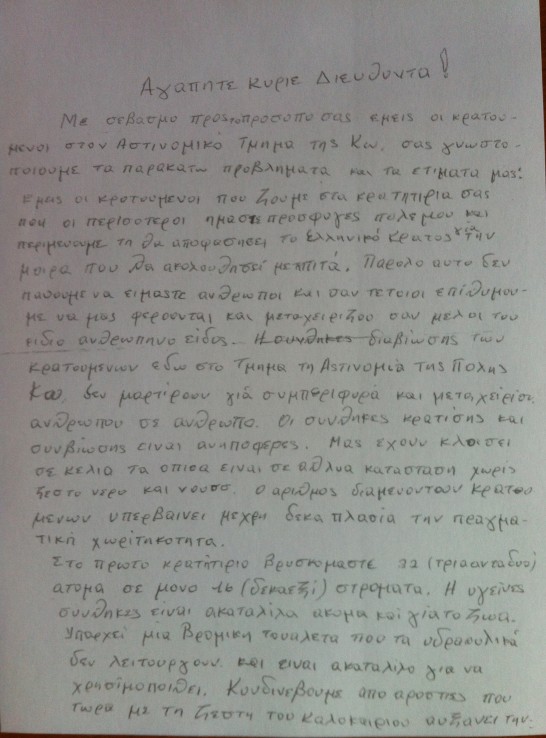 Αγαπητε κυριε Διευθυντα!
Με σεβασμο προς το προσωπο σας εμεις οι κρατου-
μενοι στον Αστινομικό Τμημα της Κω, σας γνωστο-
ποιουμε τα παρακατω προβληματα και τα ετιματα μας:
Εμεις οι κρατουμενοι που ζουμε στα κρατητιρια σας
που οι περισοτεροι ημαστε προσφυγες πολεμου και
περιμενουμε τη θα αποφασησει το Ελληνικό κρατος για την
μοιρα που θα ακολουθησεί μεπιτά. Παρολο αυτο δεν
παυουμε να ειμαστε ανθρωποι και σαν τετοιοι επίθυμου-
με να μας φερουνται και μεταχειριζου σαν μελοι του
ειδιο ανθρωπηνο είδος. Η συνθηκες διαβίωσης των
κρατουμενων εδω στο Τμημα τη Αστινομία της Πολης
Κω, δεν μαρτίρουν γιά συμπεριφορά και μεταχείριση
ανθρωπου σε ανθρωπο. Οι συνθηκες κρατισης και
συνβίωσης ειναι ανηποφερες. Μας εχουν κλεισει
σε κελια τα οπισα ειναι σε αθλυα κατασταση χωρις
ζεστο νερο και ντουσ. Ο αριθμος διαμενοντων κρατου
μενων υπερβαινει μεχρη δεκα πλασία την πραγμα-
τική χωρίτηκοτητα.
Στο πρωτο κρατήτιριο Βρυσκομαστε 32 (τριαανταδυο)
ατομα σε μονο 16 (δεκαεξί) στροματα. Η υγείνες
συνθηκες είναι ακαταλίλα ακομα και γία το ζωα.
Υπαρχεί μία βρομικη τουαλετα που τα υδραυλικά
δεν λειτουργουν και ειναι ακαταλιλο για να
χρησίμοποιθει. Κουδινεβουμε απο αροστιες που
τωρα με τη ζεστη του καλοκαιριου αυξανει την